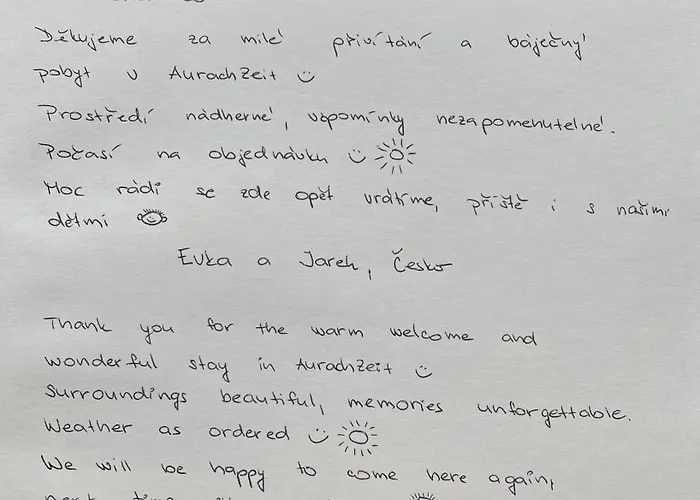 Děkujeme za milé přivítání a báječný
pobyt v AurachZeit
Prostředí nádherné, vzpomínky nezapomenutelné.
Počasí na objednávku
Moc rádi se zde opět vrátíme, příště i s našimi
dětmi
Evka a Jarek, Česko
Thank you for the warm welcome and
wonderful stay in AurachZeit
Surroundings beautiful, memories unforgettable.
Weather as ordered
We will be happy to come here again,
next time